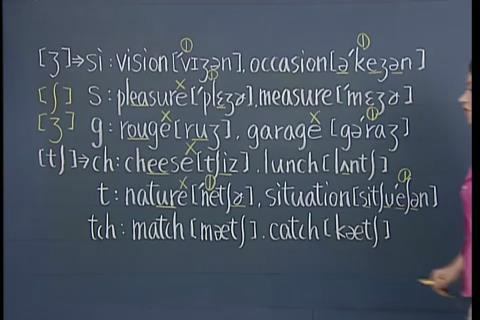 [ʒ]⇒si:vision[ˈvɪʒən],occasion[əˈkeʒən]
[ʃ] S:pleasure[ˈplɛʒɚ],measure[ˈmɛʒɚ]
[ʒ] g:rouge[ruʒ],garage[gəˈraʒ]
[tʃ]⇒ch:cheese[tʃiz].lunch[lʌntʃ]
t:nature[ˈnetʃɚ],situation[sɪtʃʊˈeʃən]
tch:match[mætʃ].catch[kætʃ]